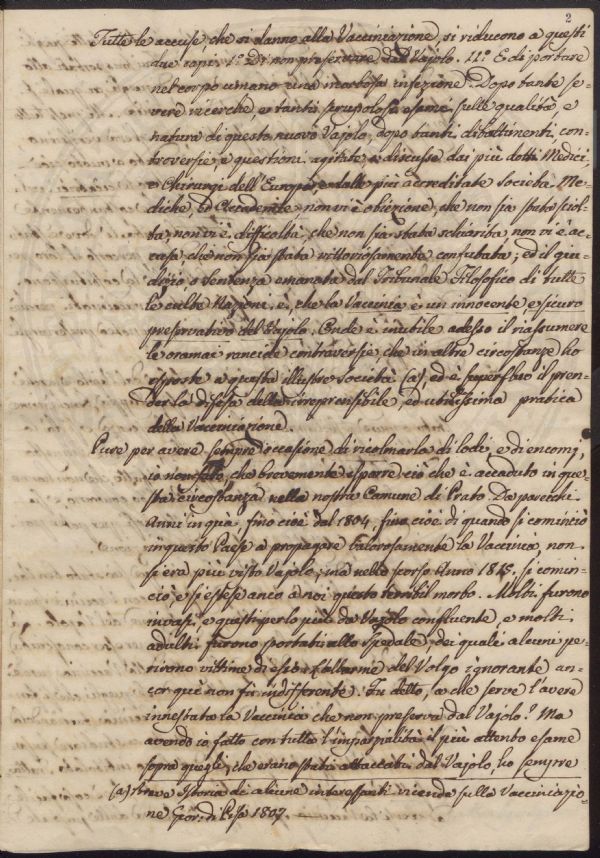 2
Tutte le accuse, che si danno alla Vaccinazione, si riducono a questi
due capi: 1.º Di non preservare dal Vajolo. 11.º E di portare
nel corpo umano una morbosa infezione. Dopo tante se-
vere ricerche, e tanti scrupolosi esami sulle qualità e
natura di questo nuovo Vajolo, dopo tanti dibattimenti, con-
troversie, e questioni agitate, e discusse dai più dotti Medici,
e Chirurgi dell'Europa, e dalle più accreditate società Me-
diche, ed Accademie, non vi è obiezione, che non sia stata sciol-
ta, non vi è difficoltà, che non sia stata schiarita non vi è ac-
cusa, che non sia stata vittoriosamente confutata; ed il giu-
dizio o Sentenza emanata dal Tribunale Filosofico di tutte
le culte Nazioni, è, che la Vaccinia è un innocente, e sicuro
preservativo del Vajolo. Onde è inutile adesso il riassumere
le oramai rancide controversie, che in altre circostanze ho
esposte a questa illustre società (a), ed è superfluo il pren-
der la difesa della irreprensibile, ed utilissima pratica
della Vaccinazione.
Pure per avere sempre occasione di ricolmarla di lodi, e di encomj,
io non fallo, che brevemente esporre ciò che è accaduto in que-
sta circostanza nella nostra Comune di Prato. Da parecchi
Anni in quà, fino cioè dal 1804, fino cioè di quando si cominciò
in questo Paese a propagare valorosamente la Vaccinia, non
si era più visto Vajolo; ma nello scorso Anno 1815. si comin-
ciò, e si estese anco a noi questo terribil morbo. Molti furono
invasi, e questi per lo più da Vajolo confluente, e molti
adulti furono portati allo Spedale, dei quali alcuni pe-
rirono vittime di esso. L'allarme del Volgo ignorante an-
cor qui non fù indifferente. Fu detto, a che serve l'avere
innestato la Vaccinia che non preserva dal Vajolo? Ma
avendo io fatto con tutta l'imparzialità il più attento esame
sopra quegli, che erano stati attaccati dal Vajolo, ho sempre
(a) Breve Istoria di alcune interessanti vicende sulla Vaccinazio-
ne Giorn: di Pisa 1807.